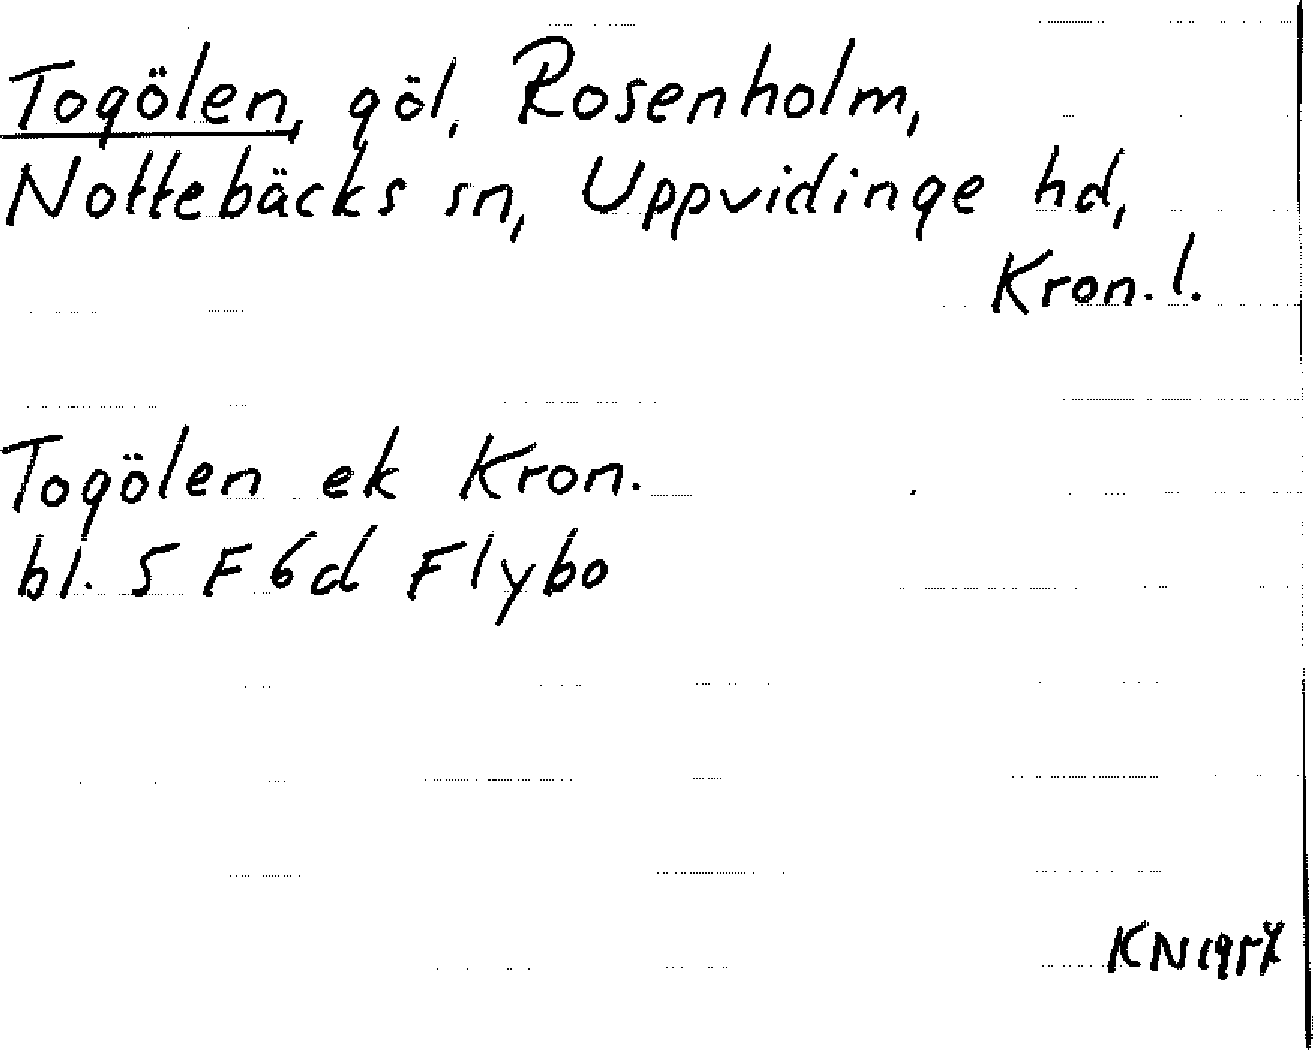 Togölen, göl, Rosenholm,
Nottebäcks sn, Uppvidinge hd,
Kron. l.
Togölen ek Kron.
bl. 5 F 6d Flybo
KN 1957